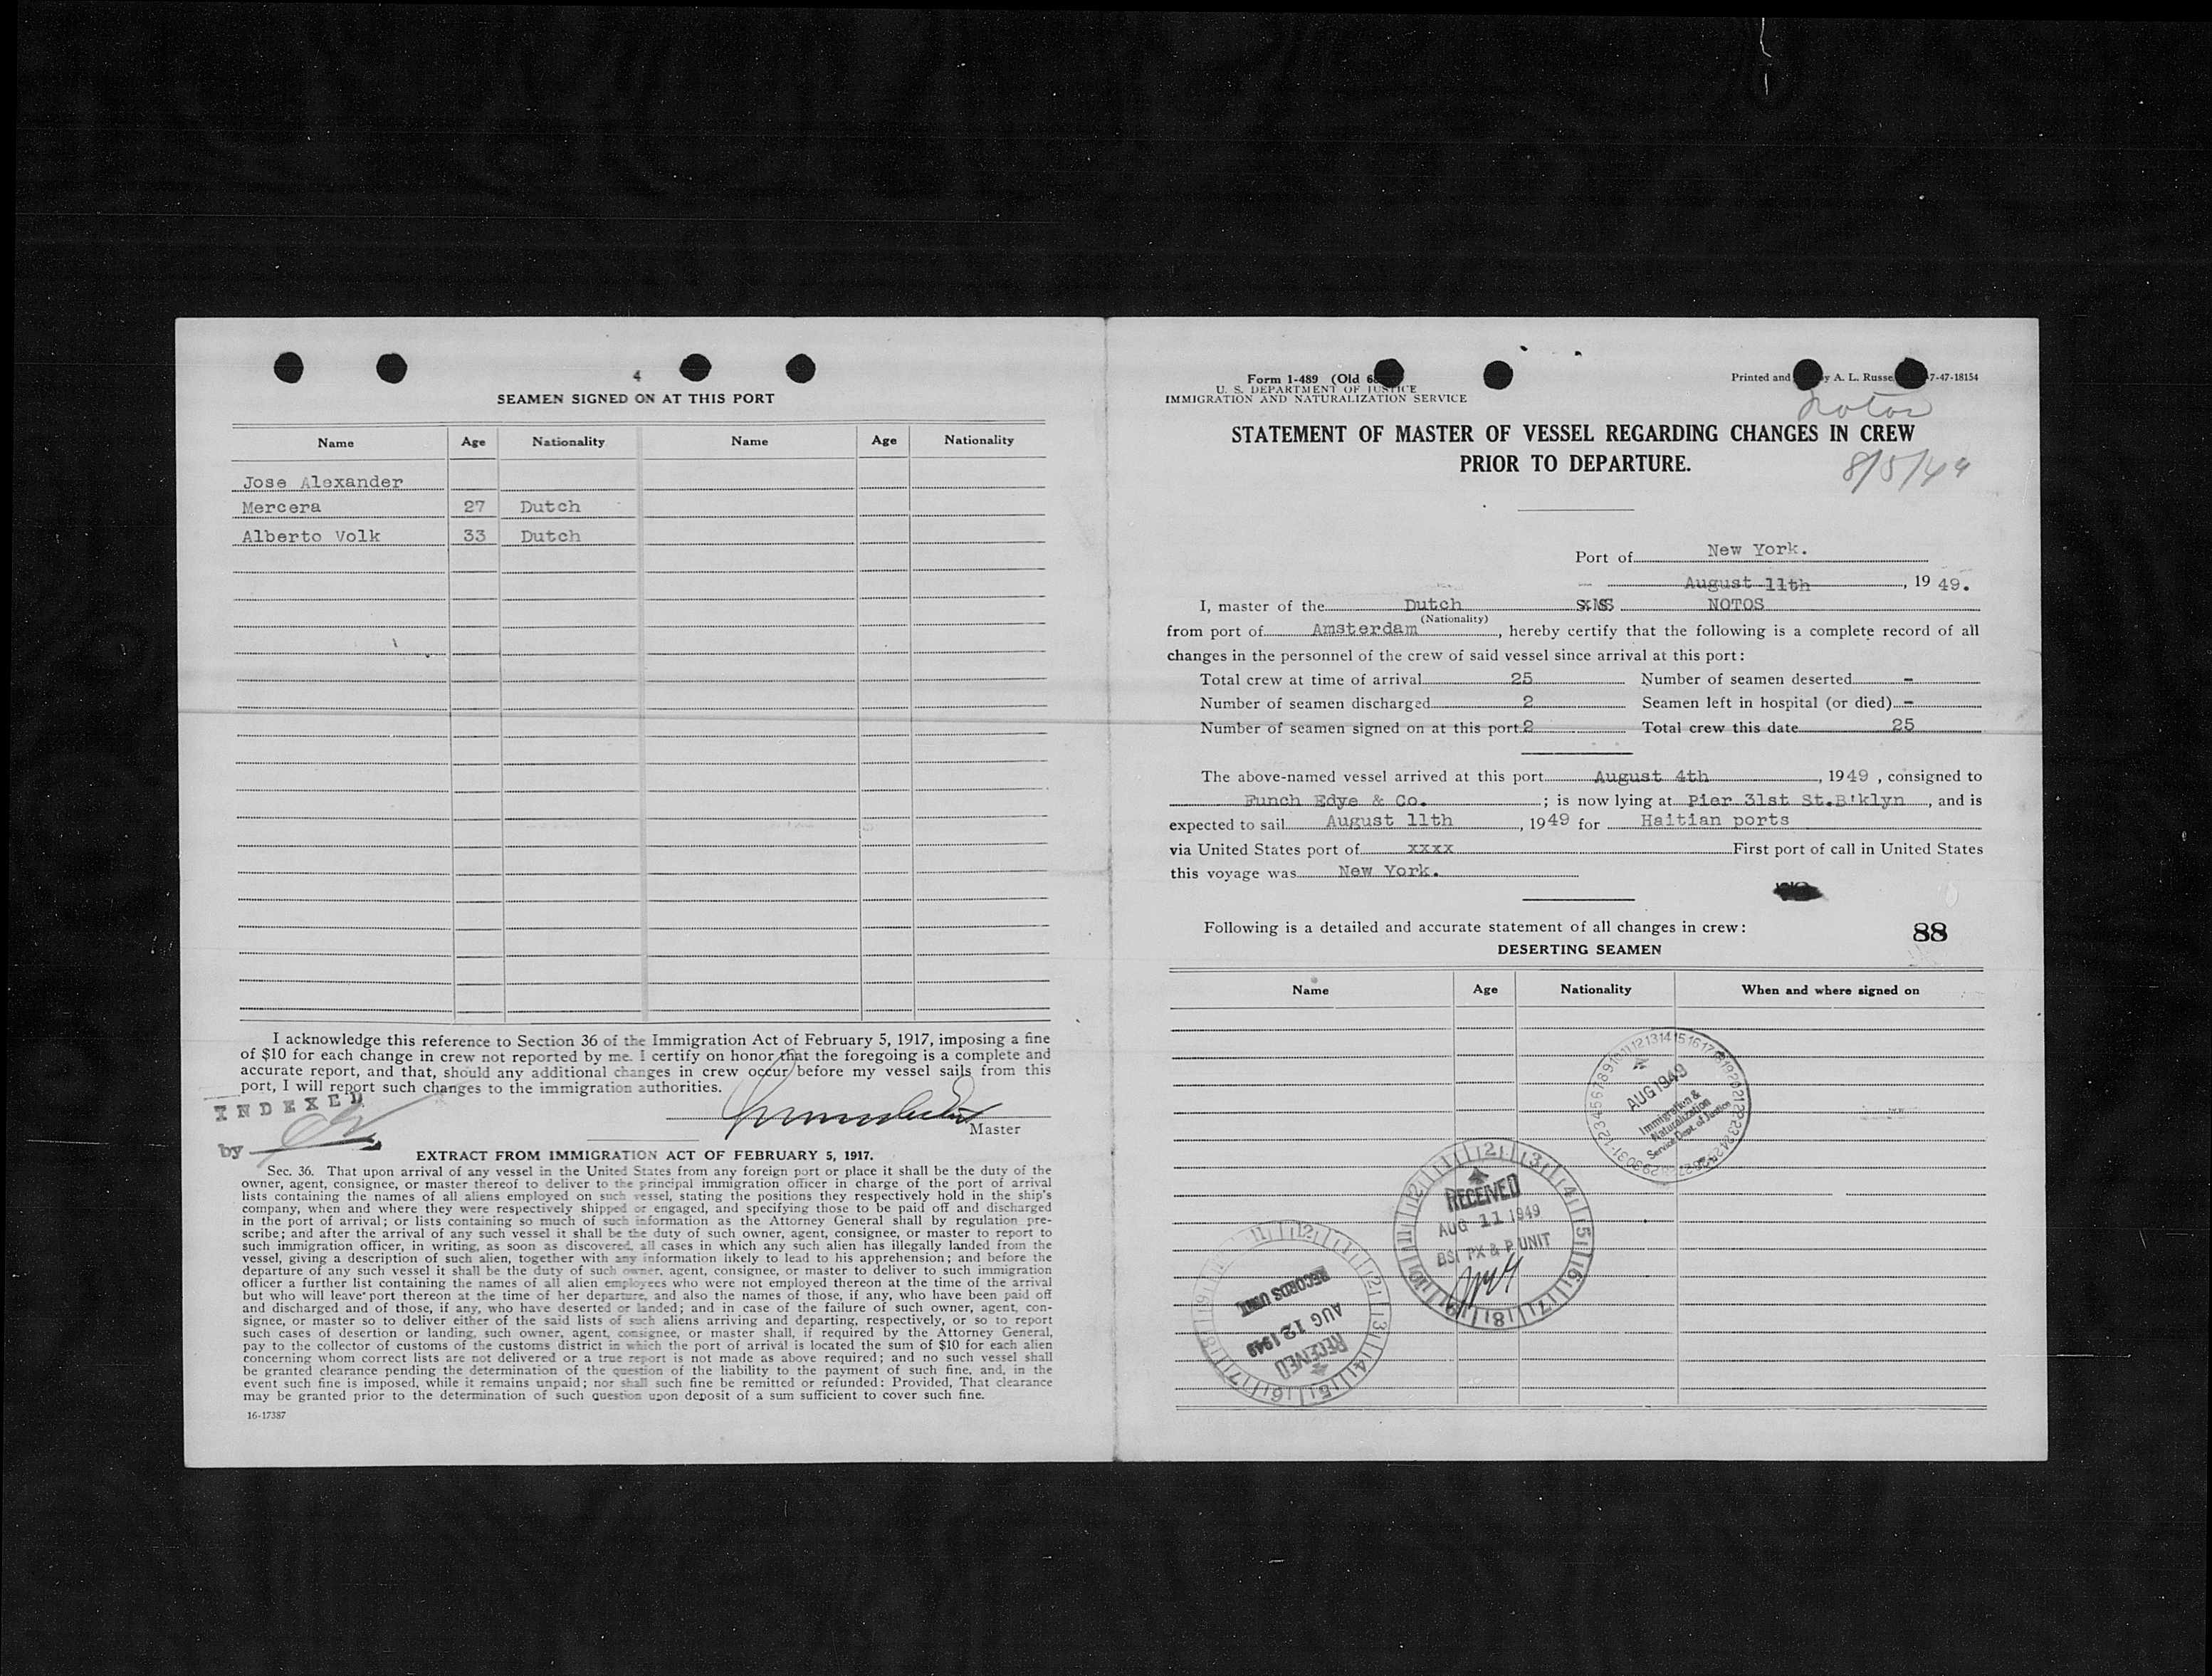 4
SEAMEN SIGNED ON AT THIS PORT
Name Age Nationality Name Age Nationality
Jose Alexander
Mercera 27 Dutch
Alberto Volk 33 Dutch
I acknowledge this reference to Section 36 of the Immigration Act of February 5, 1917, imposing a fine
of $10 for each change in crew not reported by me. I certify on honor that the foregoing is a complete and
accurate report, and that, should any additional changes in crew occur before my vessel sails from this
port, I will report such changes to the immigration authorities.
INDEXED
by
Master
EXTRACT FROM IMMIGRATION ACT OF FEBRUARY 5, 1917.
Sec. 36. That upon arrival of any vessel in the United States from any foreign port or place it shall be the duty of the
owner, agent, consignee, or master thereof to deliver to the principal immigration officer in charge of the port of arrival
lists containing the names of all aliens employed on such vessel, stating the positions they respectively hold in the ship's
company, when and where they were respectively shipped or engaged, and specifying those to be paid off and discharged
in the port of arrival; or lists containing so much of such information as the Attorney General shall by regulation pre-
scribe; and after the arrival of any such vessel it shall be the duty of such owner, agent, consignee, or master to report to
such immigration officer, in writing, as soon as discovered, all cases in which any such alien has illegally landed from the
vessel, giving a description of such alien, together with any information likely to lead to his apprehension; and before the
departure of any such vessel it shall be the duty of such owner, agent, consignee, or master to deliver to such immigration
officer a further list containing the names of all alien employees who were not employed thereon at the time of the arrival
but who will leave port thereon at the time of her departure, and also the names of those, if any, who have been paid off
and discharged and of those, if any, who have deserted or landed; and in case of the failure of such owner, agent, con-
signee, or master so to deliver either of the said lists of such aliens arriving and departing, respectively, or so to report
such cases of desertion or landing, such owner, agent, consignee, or master shall, if required by the Attorney General,
pay to the collector of customs of the customs district in which the port of arrival is located the sum of $10 for each alien
concerning whom correct lists are not delivered or a true report is not made as above required; and no such vessel shall
be granted clearance pending the determination of the question of the liability to the payment of such fine, and, in the
event such fine is imposed, while it remains unpaid; nor shall such fine be remitted or refunded: Provided, That clearance
may be granted prior to the determination of such question upon deposit of a sum sufficient to cover such fine.
16-17387
Form 1-489 (Old 6
Printed and y A. L. Russe 7-47-18154
U. S. DEPARTMENT OF JUSTICE
IMMIGRATION AND NATURALIZATION SERVICE
Notos
STATEMENT OF MASTER OF VESSEL REGARDING CHANGES IN CREW
PRIOR TO DEPARTURE.
8/5/49
Port of New York.
August 11th, 19 49.
I, master of the Dutch NOTOS
(Nationality)
from port of Amsterdam, hereby certify that the following is a complete record of all
changes in the personnel of the crew of said vessel since arrival at this port:
Total crew at time of arrival 25 Number of seamen deserted -
Number of seamen discharged 2 Seamen left in hospital (or died) -
Number of seamen signed on at this port 2 Total crew this date 25
The above-named vessel arrived at this port August 4th, 1949, consigned to
Funch Edye & Co.; is now lying at Pier 31st St.B'klyn, and is
expected to sail August 11th, 1949 for Haitian ports
via United States port of xxxx First port of call in United States
this voyage was New York.
Following is a detailed and accurate statement of all changes in crew:
88
DESERTING SEAMEN
Name Age Nationality When and where signed on
AUG 1949
Immigration &
Naturalization
Service Dept. of Justice
RECEIVED
AUG 11 1949
BSI PX & P UNIT
RECEIVED
AUG 12 1949
RECORDS UNIT